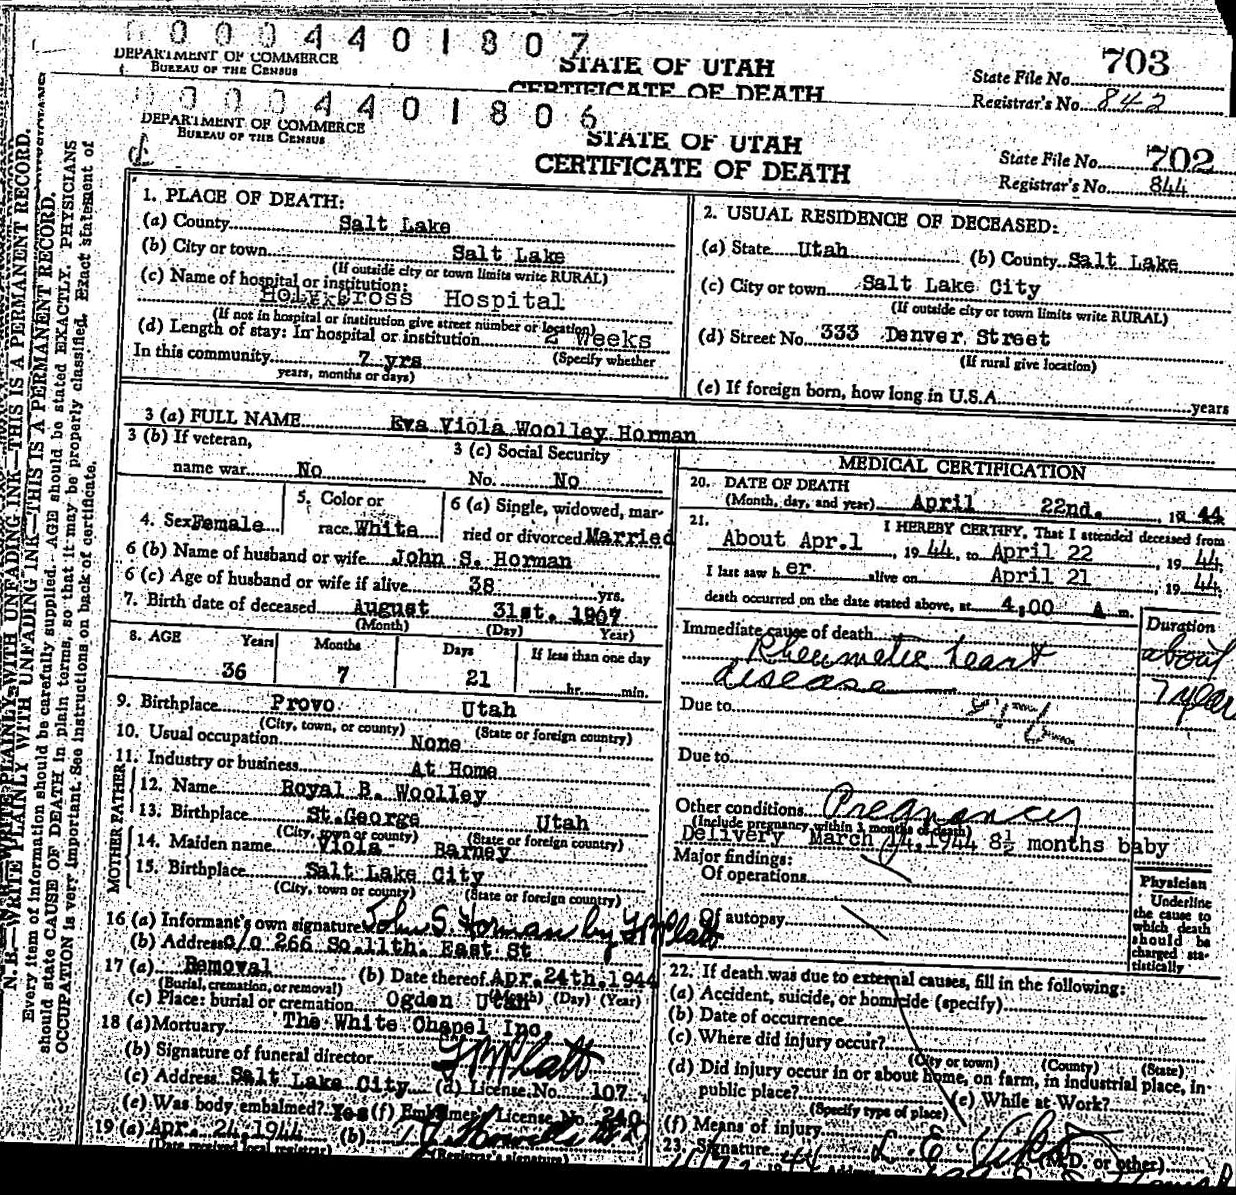 0004401807
DEPARTMENT OF COMMERCE
BUREAU OF THE CENSUS
STATE OF UTAH
CERTIFICATE OF DEATH
State File No. 703
Registrar's No. 842
0004401806
DEPARTMENT OF COMMERCE
BUREAU OF THE CENSUS
STATE OF UTAH
CERTIFICATE OF DEATH
State File No. 702
Registrar's No. 844
N. B.—WRITE PLAINLY WITH UNFADING INK—THIS IS A PERMANENT RECORD.
Every item of information should be carefully supplied. AGE should be stated EXACTLY. PHYSICIANS
should state CAUSE OF DEATH in plain terms, so that it may be properly classified. Exact statement of
OCCUPATION is very important. See instructions on back of certificate.
1. PLACE OF DEATH:
(a) County Salt Lake
(b) City or town Salt Lake
(If outside city or town limits write RURAL)
(c) Name of hospital or institution:
Holy Cross Hospital
(If not in hospital or institution give street number or location)
(d) Length of stay: In hospital or institution 2 Weeks
(Specify whether
In this community 7 yrs
years, months or days)
2. USUAL RESIDENCE OF DECEASED:
(a) State Utah (b) County Salt Lake
(c) City or town Salt Lake City
(If outside city or town limits write RURAL)
(d) Street No. 333 Denver Street
(If rural give location)
(e) If foreign born, how long in U.S.A. years
3 (a) FULL NAME Eva Viola Woolley Horman
3 (b) If veteran,
name war No
3 (c) Social Security
No. No
4. Sex Female
5. Color or
race White
6 (a) Single, widowed, mar-
ried or divorced Married
6 (b) Name of husband or wife John S. Horman
6 (c) Age of husband or wife if alive 38 yrs.
7. Birth date of deceased August 31st. 1907
(Month) (Day) Year)
8. AGE Years Months Days If less than one day
36 7 21 hr. min.
9. Birthplace Provo Utah
(City, town, or county) (State or foreign country)
10. Usual occupation None
11. Industry or business At Home
FATHER
12. Name Royal B. Woolley
13. Birthplace St.George Utah
(City, town or county) (State or foreign country)
MOTHER
14. Maiden name Viola Barney
15. Birthplace Salt Lake City
(City, town or county) (State or foreign country)
16 (a) Informant's own signature John S. Horman by
(b) Address c/o 266 So.11th. East St
17 (a) Removal (b) Date thereof Apr.24th.1944
(Burial, cremation, or removal) (Month) (Day) (Year)
(c) Place: burial or cremation Ogden Utah
18 (a) Mortuary The White Chapel Inc.
(b) Signature of funeral director
(c) Address Salt Lake City (d) License No. 107
(e) Was body embalmed? Yes (f) Embalmer's License No. 240
19 (a) Apr. 24.1944 (b)
(Date received local registrar) (Registrar's signature)
MEDICAL CERTIFICATION
20. DATE OF DEATH
(Month, day, and year) April 22nd. , 19 44
21. I HEREBY CERTIFY, That I attended deceased from
About Apr.1 , 19 44, to April 22 , 19 44.
I last saw h er alive on April 21 , 19 44.
death occurred on the date stated above, at 4.00 A m.
Duration
Immediate cause of death
Rheumatic heart
disease
about
7 year
Due to
Due to
Other conditions Pregnancy
(Include pregnancy within 3 months of death)
Delivery March 14.1944 8½ months baby
Major findings:
Of operations
Of autopsy
Physician
Underline
the cause to
which death
should be
charged sta-
tistically
22. If death was due to external causes, fill in the following:
(a) Accident, suicide, or homicide (specify)
(b) Date of occurrence
(c) Where did injury occur?
(City or town) (County) (State)
(d) Did injury occur in or about home, on farm, in industrial place, in
public place? (e) While at Work?
(Specify type of place)
(f) Means of injury
23. Signature L. E. (M.D. or other)